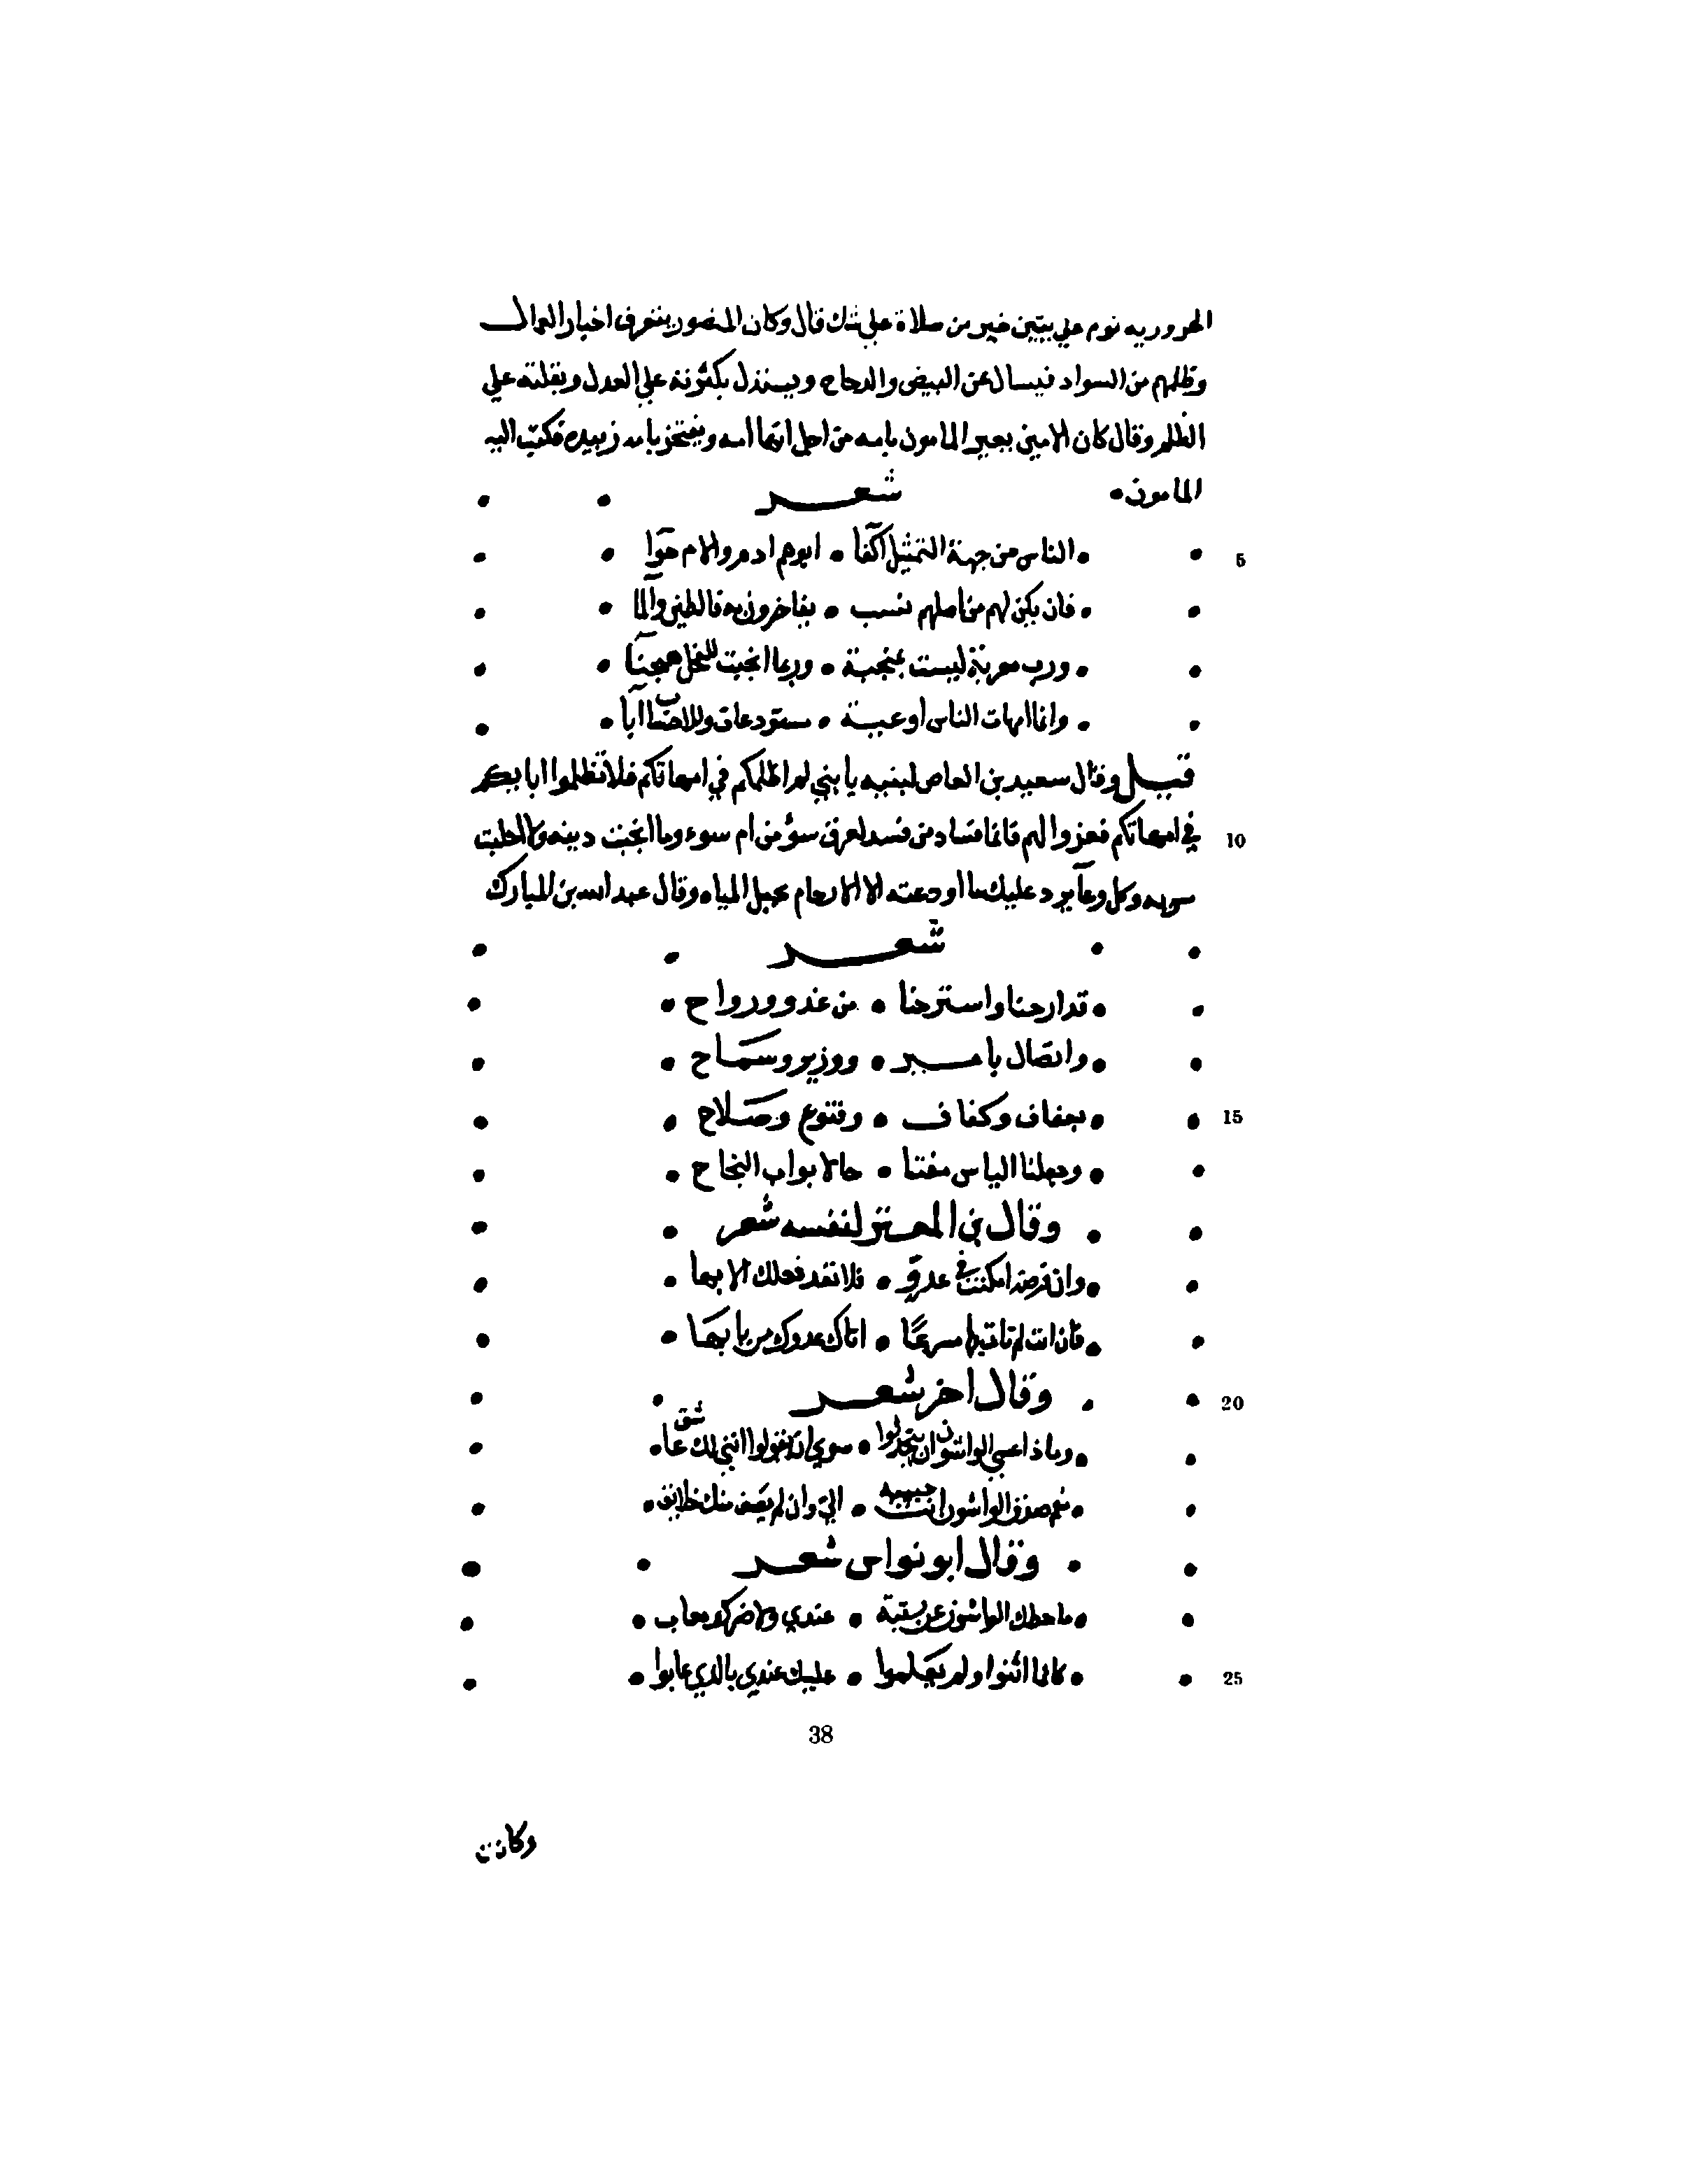 الحروريه نوم علي يقين خير من صلاة علي شك قال وكان المنصور يتعرف اخبار العمال
وظلمهم من السواد فيسال عن البيض والدجاج ويستدل بكثرته علي العدل وبقلته علي
الظلم وقال كان الامين يعير المامون بامه من اجل انها امه ويفتخر بامه زبيده فكتب اليه
المامون • شعر
5 الناس من جهة التمثيل اكفا • ابوهم ادم والام حوا
فان يكن لهم من اصلهم نسب • يفاخرون به فالطين والما
ورب معربة ليست بمنجبة • وربما انجبت للفحل عجمآ
وانما امهات الناس اوعية • مستودعات وللاحساب ابا
قيل وقال سعيد بن العاص لبنيه يا بني لم اظلمكم في امهاتكم فلا تظلموا ابا بكر
10 في امهاتكم فعزوا لهم فانما فساد من فسد لعرق سوء من ام سوء وما انجبت دينه ولا حلبت
سويه وكل وعآ يرد عليك ما اودعته الا الارحام يحيل المياه وقال عبد الله بن المبارك
شعر
قد ارحنا واسترحنا • من غدو ورواح
واتصال بامير • ووزير وسماح
15 بعفاف وكفاف • وقنوع وصلاح
وجعلنا الياس مفتا • حا لابواب النجاح
وقال بن المعتز لنفسه شعر
وان فرصة امكنت في عدو • فلا تفد فعلك الا بها
فان انت لم تاتيها مسرعًا • اتاك عدوك من بابها
20 وقال اخر شعر
وماذا عسي الواشون ان يتحدثوا • سوي ان يقولوا انني لك عاشق
نعم صدق الواشون انت حبيبة • الي وان لم تصف منك خلايق
وقال ابو نواس شعر
ما حطك الواشون عن رتبة • عندي ولا ضرك معاب
25 كانما اثنوا ولم يعلموا • عليك عندي بالذي عابوا
38
وكانت